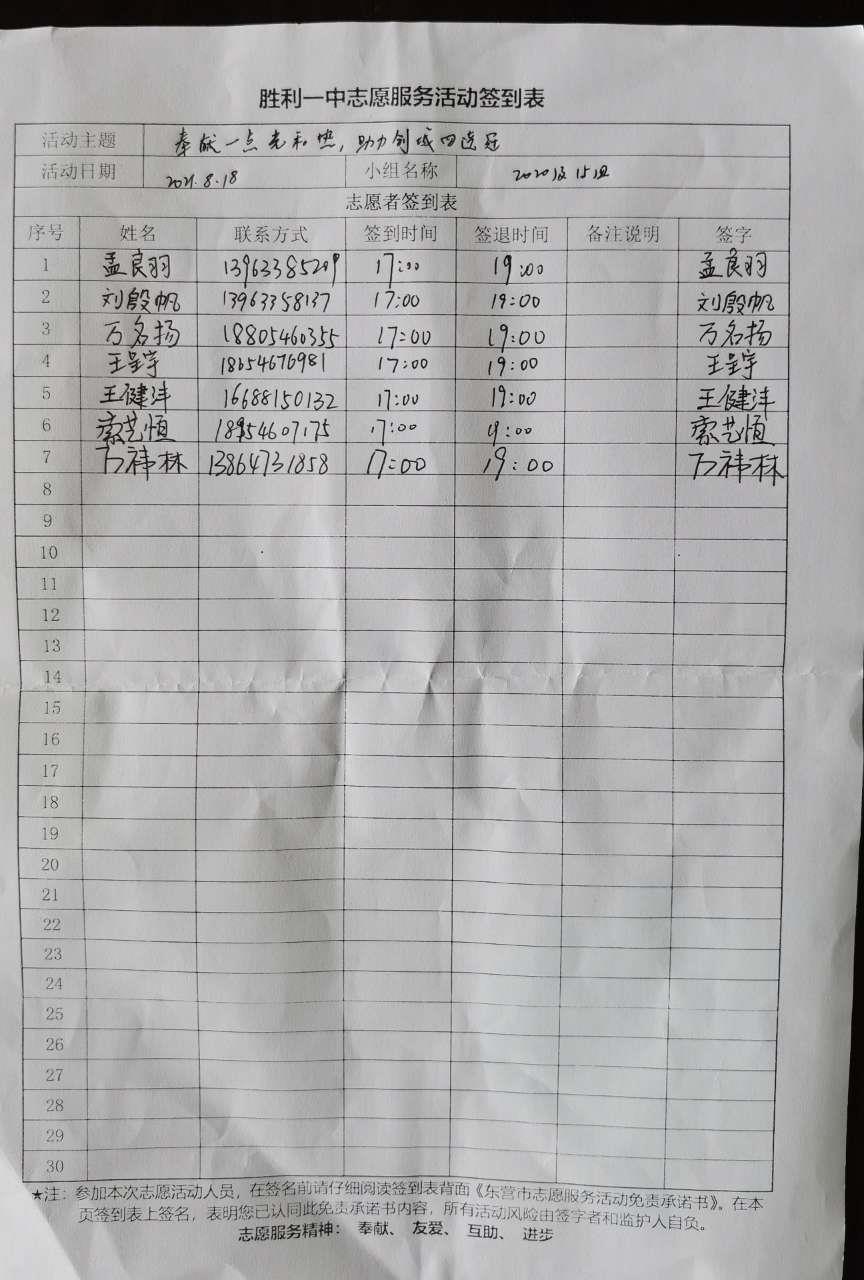 胜利一中志愿服务活动签到表
活动主题 奉献一点光和热，助力创城四连冠
活动日期 2021.8.18 小组名称 2020级15班
志愿者签到表
序号 姓名 联系方式 签到时间 签退时间 备注说明 签字
1 孟良羽 13963385209 17:00 19:00 孟良羽
2 刘殷帆 13963358137 17:00 19:00 刘殷帆
3 万名扬 18805460355 17:00 19:00 万名扬
4 王呈宇 18654676981 17:00 19:00 王呈宇
5 王健沣 16688150132 17:00 19:00 王健沣
6 索艺恒 18954607175 17:00 19:00 索艺恒
7 万祎林 13864731858 17:00 19:00 万祎林
8
9
10
11
12
13
14
15
16
17
18
19
20
21
22
23
24
25
26
27
28
29
30
★注：参加本次志愿活动人员，在签名前请仔细阅读签到表背面《东营市志愿服务活动免责承诺书》。在本
页签到表上签名，表明您已认同此免责承诺书内容，所有活动风险由签字者和监护人自负。
志愿服务精神： 奉献、 友爱、 互助、 进步